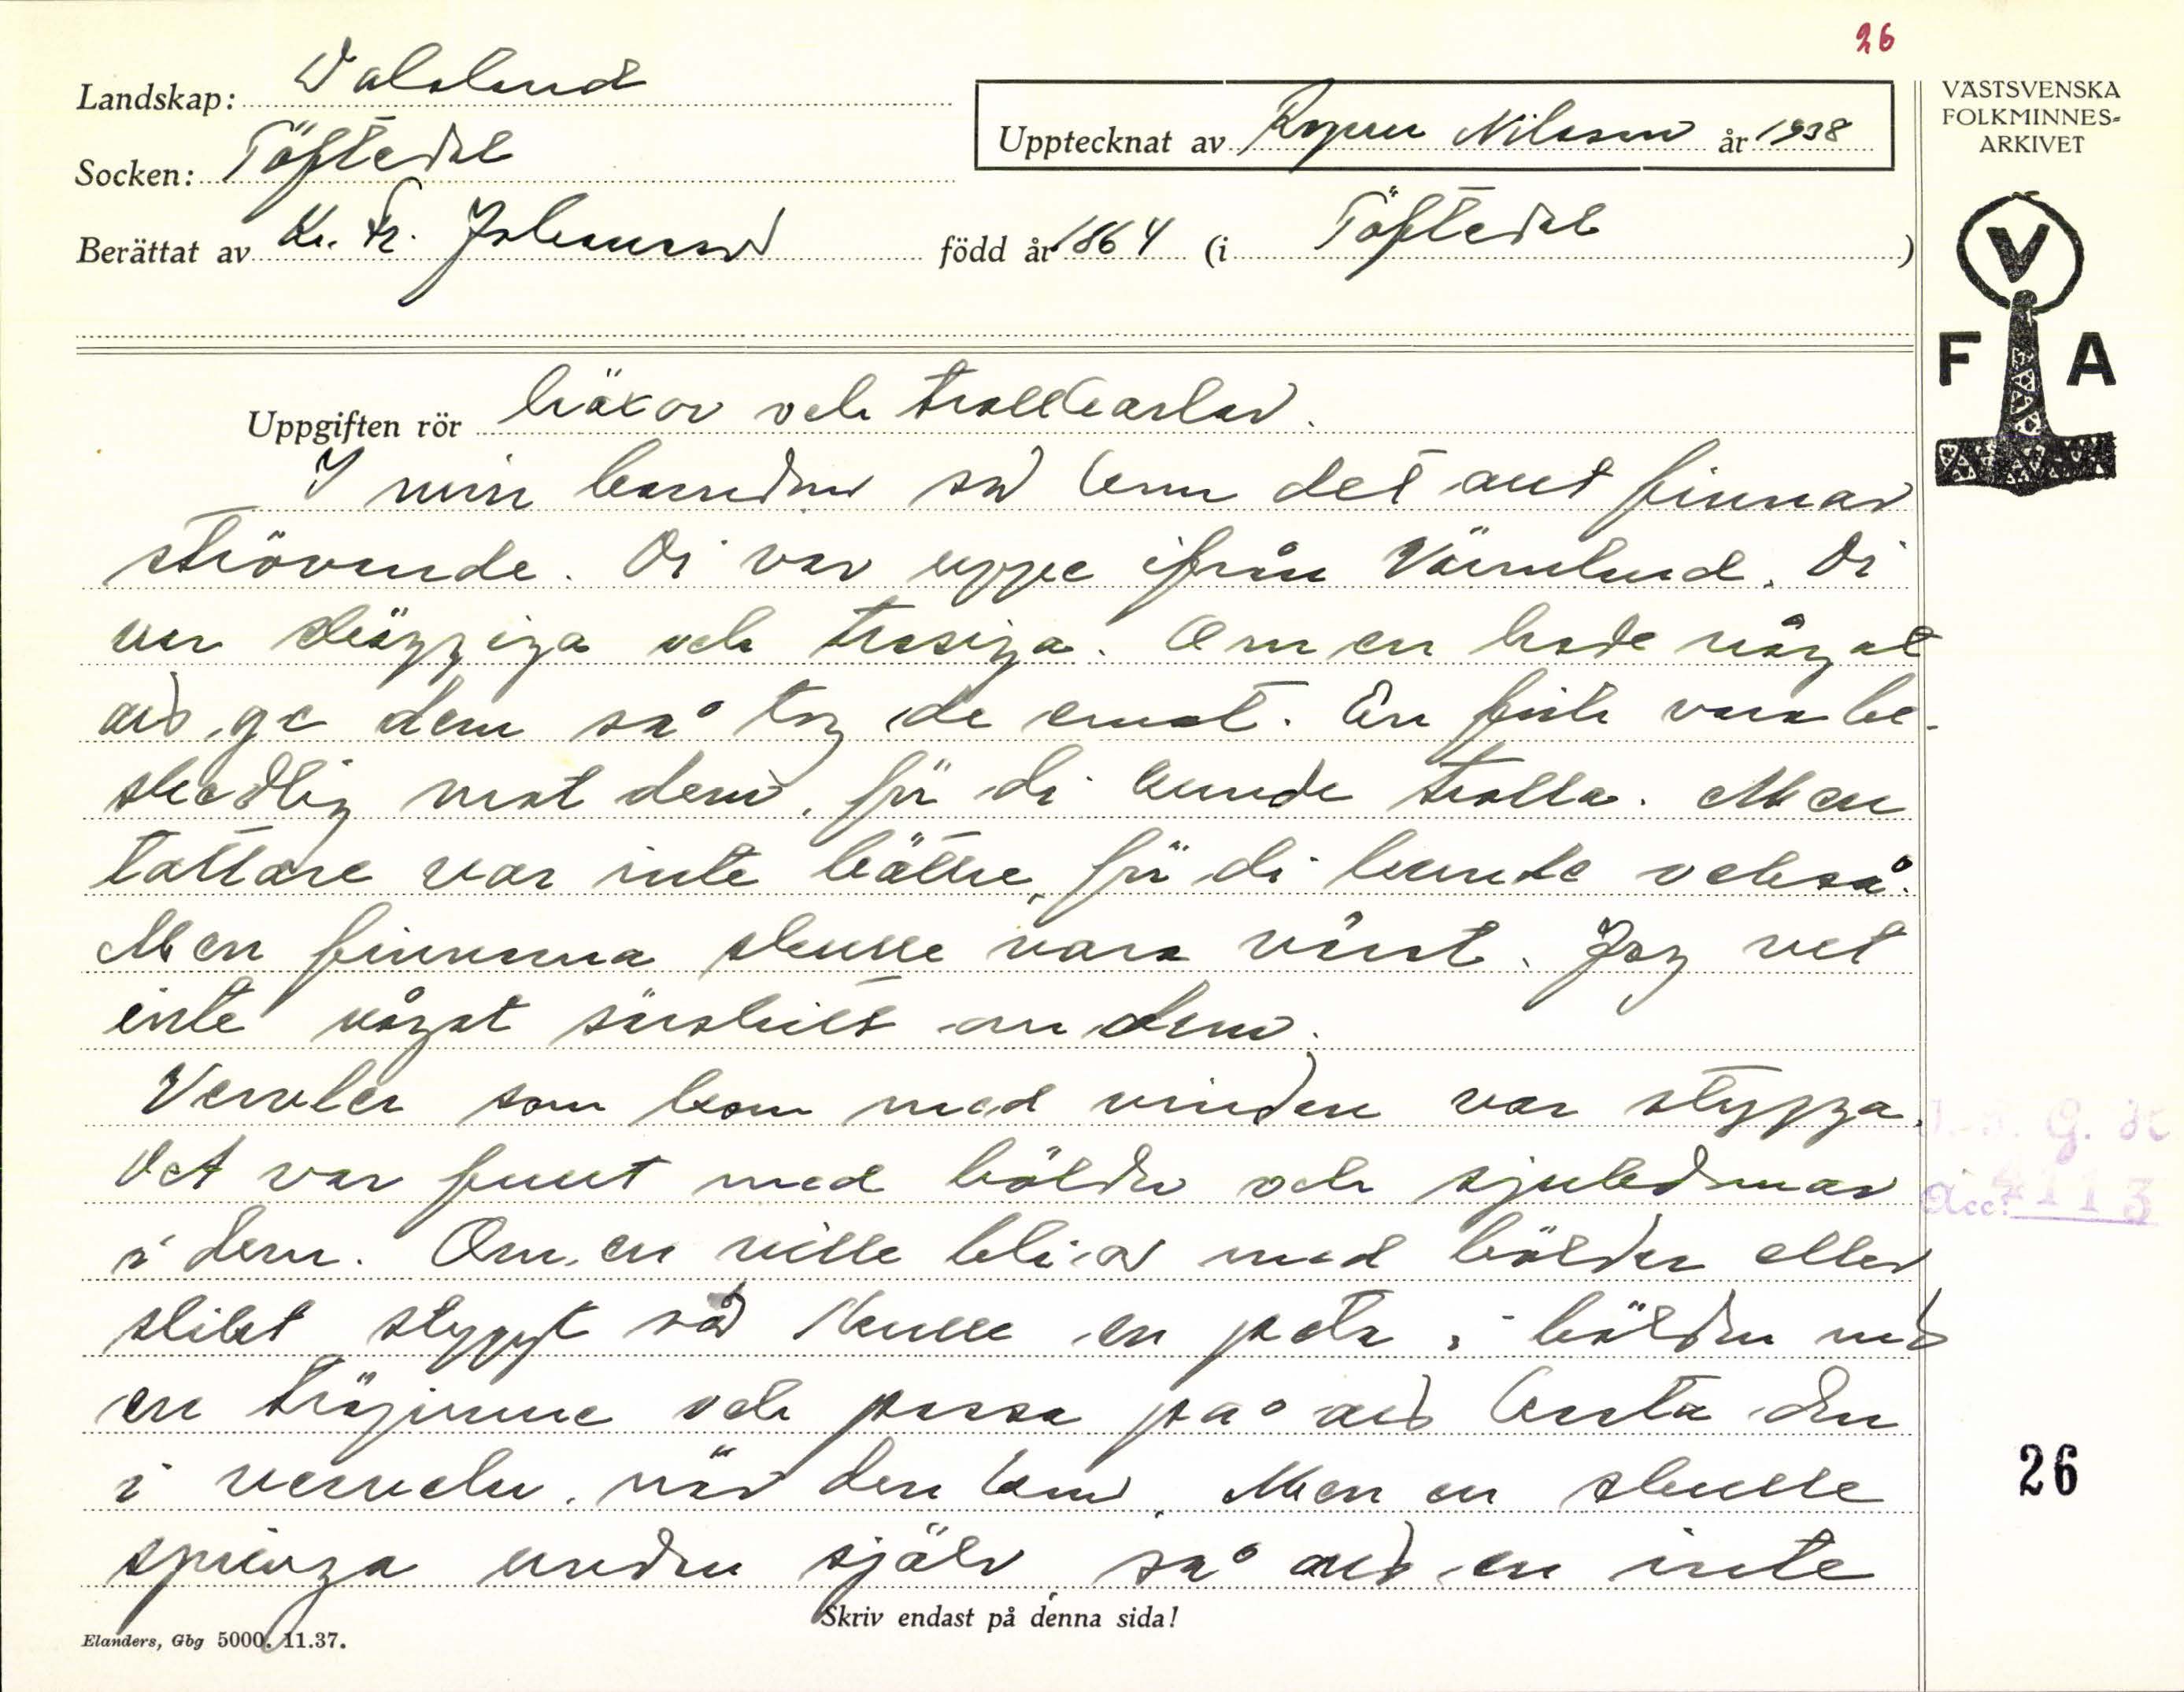 26
Landskap: Dalsland
Socken: Töftedal
Upptecknat av Ragnar Nilsson år 1938
VÄSTSVENSKA
FOLKMINNES-
ARKIVET
Berättat av K. Fr. Johansson född år 1864 (i Töftedal)
V
F A
Uppgiften rör häxor och trollkarlar.
I min barndom så kom det ant finnar
strövande. Di var uppe ifrån Värmland. Di
var skäggiga och trasiga. Om en hade något
att ge dem så tog de emot. En fick vara be-
skedlig mot dem, för di kunde trolla. Men
tattare var inte bättre, för di kunde också.
Men finnarna skulle vara värst. Jag vet
inte något särskilt om dem.
Vervlar som kom med vinden var stygga.
Det var fullt med bölder och sjukdomar
i dem. Om en ville bli av med bölder eller
slikt styggt så skulle en peta i bölden med
en träpinne och passa på att kasta den
i verveln, när den kom. Men en skulle
springa undan själv, så att en inte
D.A.G.H.
Acc. 4113
26
Skriv endast på denna sida!
Elanders, Gbg 5000. 11.37.